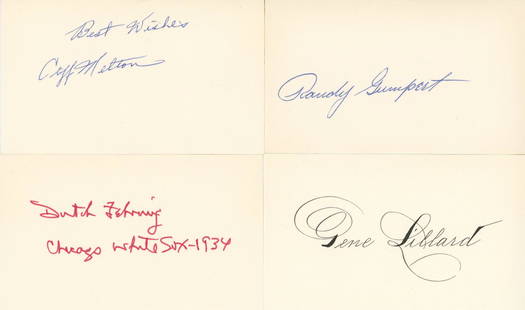 Best Wishes
Cliff Melton
Randy Gumpert
Dutch Fehring
Chicago White Sox-1934
Gene Lillard